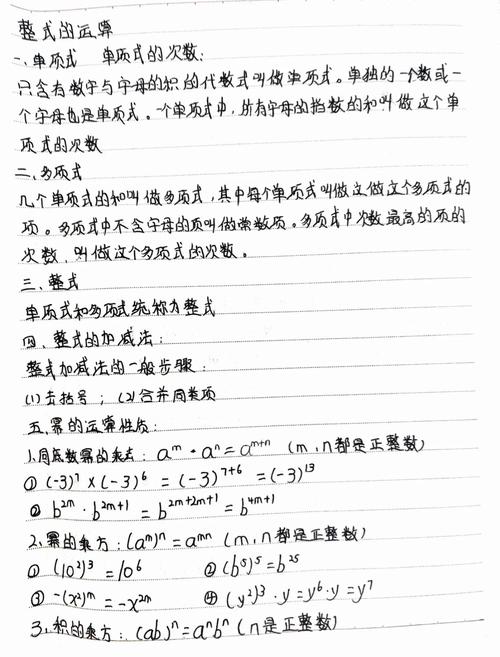 整式的运算
一、单项式 单项式的次数:
只含有数字与字母的积的代数式叫做单项式。单独的一个数或一
个字母也是单项式。一个单项式中,所有字母的指数的和叫做这个单
项式的次数
二、多项式
几个单项式的和叫做多项式,其中每个单项式叫做这做这个多项式的
项。多项式中不含字母的项叫做常数项。多项式中次数最高的项的
次数,叫做这个多项式的次数。
三、整式
单项式和多项式统称为整式
四、整式的加减法:
整式加减法的一般步骤:
(1)去括号;(2)合并同类项
五、幂的运算性质:
1、同底数幂的乘法:aᵐ·aⁿ=aᵐ⁺ⁿ (m,n都是正整数)
① (-3)⁷×(-3)⁶=(-3)⁷⁺⁶=(-3)¹³
② b²ᵐ·b²ᵐ⁺¹=b²ᵐ⁺²ᵐ⁺¹=b⁴ᵐ⁺¹
2、幂的乘方:(aᵐ)ⁿ=aᵐⁿ (m,n都是正整数)
① (10²)³=10⁶ ② (b⁵)⁵=b²⁵
③ -(x²)ᵐ=-x²ᵐ ④ (y²)³·y=y⁶·y=y⁷
3、积的乘方:(ab)ⁿ=aⁿbⁿ (n是正整数)